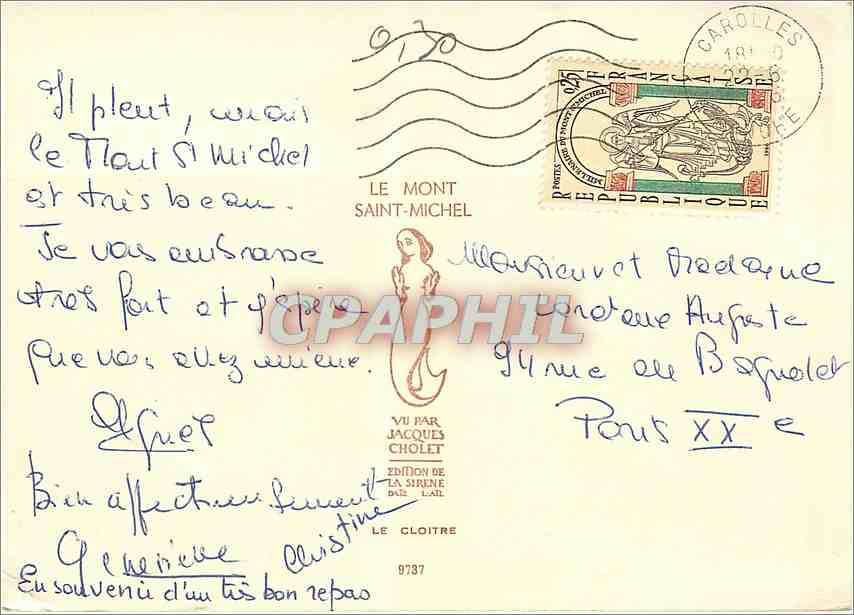 Il pleut, mais
le Mont St Michel
est très beau.
Je vous embrasse
très fort et j'espère
que vous allez mieux.
Agnès
Bien affectueusement
Geneviève
Christine
En souvenir d'un très bon repas
0,30
CAROLLES
18H
22-6
POSTES
0,25
REPUBLIQUE FRANÇAISE
MILLENAIRE DU MONT ST MICHEL
LE MONT
SAINT-MICHEL
VU PAR
JACQUES
CHOLET
EDITION DE
LA SIRENE
LE CLOITRE
9737
Monsieur et Madame
Auguste
94 rue de Bagnolet
Paris XXe
CPAPHIL